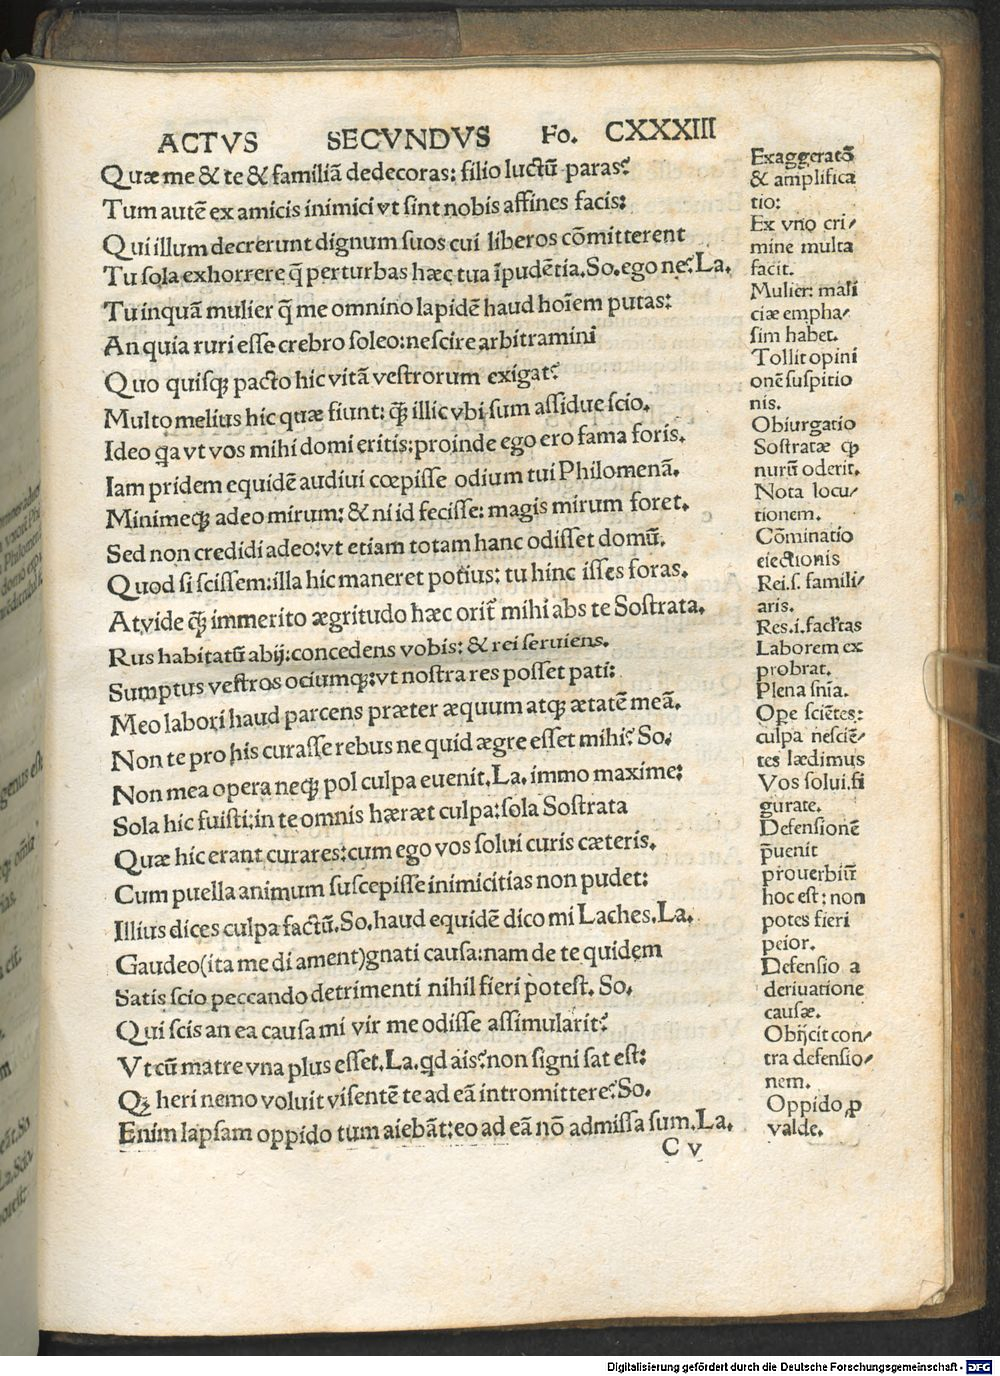 ACTVS SECVNDVS Fo. CXXXIII
Quæ me & te & familiã dedecoras: filio luctũ paras?
Tum autẽ ex amicis inimici vt sint nobis affines facis:
Qui illum decrerunt dignum suos cui liberos cõmitterent
Tu sola exhorrere q̃ perturbas hæc tua ĩpudẽtia. So. ego ne? La.
Tu inquã mulier q̃ me omnino lapidẽ haud hoĩem putas:
An quia ruri esse crebro soleo: nescire arbitramini
Quo quisqꝫ pacto hic vitã vestrorum exigat?
Multo melius hic quæ fiunt: q̃ꝫ illic vbi sum assidue scio.
Ideo q̃a vt vos mihi domi eritis: proinde ego ero fama foris.
Iam pridem equidẽ audiui cœpisse odium tui Philomenã.
Minimeqꝫ adeo mirum: & ni id fecisse: magis mirum foret.
Sed non credidi adeo: vt etiam totam hanc odisset domũ.
Quod si scissem: illa hic maneret potius: tu hinc isses foras.
At vide q̃ꝫ immerito ægritudo hæc orit̃ mihi abs te Sostrata.
Rus habitatũ abij: concedens vobis: & rei seruiens.
Sumptus vestros ociumqꝫ: vt nostra res posset pati:
Meo labori haud parcens præter æquum atqꝫ ætatẽ meã.
Non te pro his curasse rebus ne quid ægre esset mihi? So.
Non mea opera neqꝫ pol culpa euenit. La. immo maxime:
Sola hic fuisti: in te omnis hæræt culpa: sola Sostrata
Quæ hic erant curares: cum ego vos solui curis cæteris.
Cum puella animum suscepisse inimicitias non pudet:
Illius dices culpa factũ. So. haud equidẽ dico mi Laches. La.
Gaudeo (ita me di ament) gnati causa: nam de te quidem
Satis scio peccando detrimenti nihil fieri potest. So.
Qui scis an ea causa mi vir me odisse assimularit?
Vt cũ matre vna plus esset. La. q̃d ais? non signi sat est:
Qꝫ heri nemo voluit visentẽ te ad eã intromittere? So.
Enim lapsam oppido tum aiebãt: eo ad eã nõ admissa sum. La.
C v
Exaggeratõ
& amplifica
tio:
Ex vno cri/
mine multa
facit.
Mulier: mali
ciæ empha/
sim habet.
Tollit opini
onẽ suspitio
nis.
Obiurgatio
Sostratæ qꝫ
nurũ oderit.
Nota locu/
tionem.
Cõminatio
eiectionis
Rei. s. famili/
aris.
Res. i. facl̃tas
Laborem ex
probrat.
Plena snĩa.
Ope sciẽtes:
culpa nesciẽ/
tes lædimus
Vos solui. fi
gurate.
Defensionẽ
p̃uenit
prouerbiũ
hoc est: non
potes fieri
peior.
Defensio a
deriuatione
causæ.
Obijcit con/
tra defensio/
nem.
Oppido, ꝑ
valde.
Digitalisierung gefördert durch die Deutsche Forschungsgemeinschaft - DFG